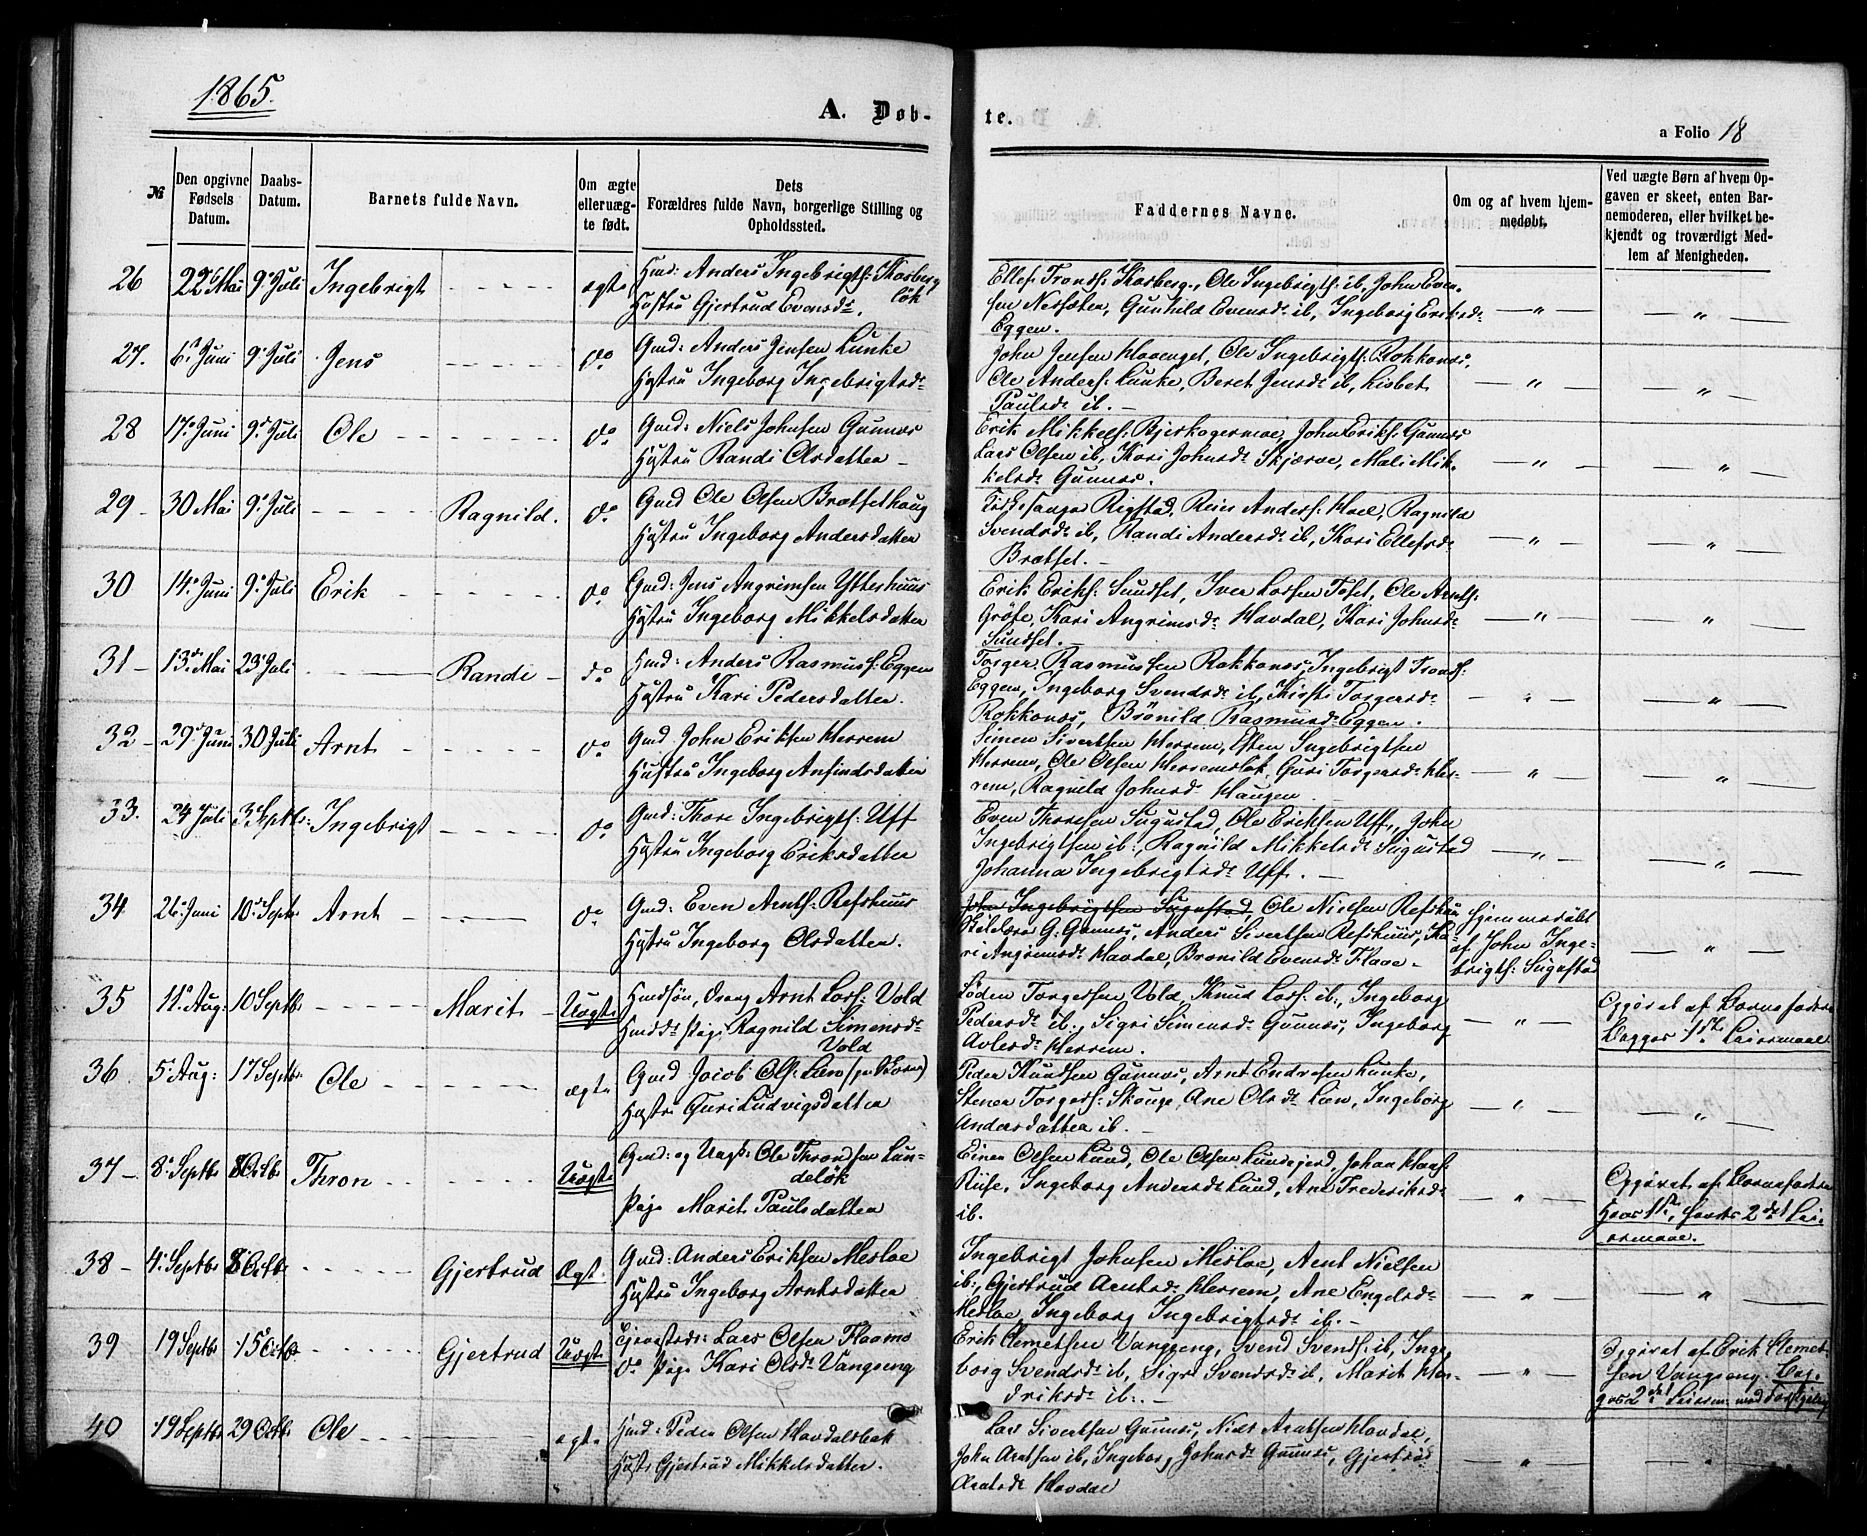 1865.
A. Døb-
te.
a Folio 18
№
Den opgivne
Fødsels
Datum.
Daabs-
Datum.
Barnets fulde Navn.
Om ægte
eller uæg-
te født.
Dets
Forældres fulde Navn, borgerlige Stilling og
Opholdssted.
Faddernes Navne.
Om og af hvem hjem-
medøbt.
Ved uægte Børn af hvem Op-
gaven er skeet, enten Bar-
nemoderen, eller hvilket be-
kjendt og troværdigt Med-
lem af Menigheden.
26 22 Mai 9 Juli Ingebrigt ægte
Hmd: Anders Ingebrigts: Kosberg
løk
Hustru Gjertrud Evensdr.
Ellef Tronds: Kosberg, Ole Ingebrigts: ib, John Even-
sen Nersæter, Gunhild Evensdr ib, Ingeborg Eriksdr
Eggen.
27. 6 Juni 9 Juli Jens do
Gmd: Anders Jensen Lunke
Hustru Ingeborg Ingebrigtsdr
John Jensen Havenget, Ole Ingebrigts: Rokkones,
Ole Anders: Lunke, Beret Jensdr ib, Lisbet
Paulsdr ib.
28 17 Juni 9 Juli Ole do
Gmd: Niels Johnsen Gunnes
Hustru Randi Olsdatter
Erik Mikkels: Bjerkagermoe, John Eriks: Gunnes
Lars Olsen ib, Kari Johnsdr Skjærve, Mali Mik-
kelsdr Gunnes.
29 30 Mai 9 Juli Ragnild. do
Gmd Ole Olsen Brætsethaug
Hustru Ingeborg Andersdatter
Rigstad, Reier Anders: Hoel, Ragnild
Svendsdr ib, Randi Andersdr ib, Kari Ellefsdr
Brætset.
30 14 Juni 9 Juli Erik do
Gmd: Jens Angrimsen Ytterhuus
Hustru Ingeborg Mikkelsdatter
Erik Eriks: Sundset, Iver Larsen Foset, Ole Arnts:
Gröte, Kari Angrimsdr Havdal, Kari Johnsdr
Sundset.
31 13 Mai 23 Juli Randi do
Hmd: Anders Rasmus: Eggen
Hustru Kari Pedersdatter.
Torger Rasmussen Rokkones, Ingebrigt Tronds:
Eggen, Ingeborg Svendsdr ib, Kirsti Torgersdr
Rokkones, Brönild Rasmusdr Eggen.
32 29 Juni 30 Juli Arnt do
Gmd John Eriksen Herrem
Hustru Ingeborg Anfindsdatter
Simen Sivertsen Herrem, Esten Ingebrigtsen
Herrem, Ole Olsen Herremsløk, Guri Torgersdr Her-
rem, Ragnild Johnsdr Haugen
33. 24 Juli 3 Septbr: Ingebrigt do
Gmd: Thore Ingebrigts: Uff
Hustru Ingeborg Eriksdatter
Even Thoresen Sugustad, Ole Eriksen Uff, John
Ingebrigtsen ib:, Ragnild Mikkelsdr Sugustad
Johanna Ingebrigtsdr Uff.
34 26 Juni 10 Septr Arnt do
Gmd: Even Arnts: Refshuus
Hustru Ingeborg Olsdatter.
John Ingebrigtsen Sugustad, Ole Nielsen Refshuus
G: Gunnes, Anders Sivertsen Refshuus, Ka-
ri Angrimsdr Havdal, Brönild Evensdr Flaae.
Hjemmedøbt
af John Inge-
brigts: Sugustad
35 11 Aug: 10 Septbr Marit Uægte
Hmdsøn, dreng Arnt Lars: Vold
Hmdsdr Pige Ragnild Simensdr
Vold
Løden Torgersen Vold, Knud Lars: ib:, Ingeborg
Pedersdr ib., Sigri Simensdr Gunnes, Ingeborg
Avlesdr Herrem.
Opgivet af Barnefaderen
Begges 1ste Leiermaal
36 5 Aug: 17 Septbr Ole ægte
Gmd Jacob Ols: Lien
Hustru Guri Ludvigsdatter
Peder Knudsen Gunnes, Arnt Endresen Lunke,
Stener Torgers: Skouge, Ane Olsdr Lien, Ingeborg
Andersdatter ib.
37 8 Septbr 8 Octbr Thron Uægte
Gmd: og Ungk: Ole Thronsen Lun-
deløk
Pige Marit Paulsdatter
Einer Olsen Lund, Ole Olsen Lundsjerd, Johan Hans:
Rise, Ingeborg Andersdr Lund, Ane Frederiksdr
ib.
Opgivet af Barnefaderen
Hans 1ste, hendes 2det Lei-
ermaal.
38 4 Septbr 8 Octbr Gjertrud Ægte
Gmd: Anders Eriksen Mesloe
Hustru Ingeborg Arntsdatter
Ingebrigt Johnsen Mesloe, Arnt Nielsen
ib:, Gjertrud Arntsdr Herrem, Ane Engelsdr
Mesloe, Ingeborg Ingebrigtsdr ib.
39 19 Septbr 15 Octbr Gjertrud Uægte
Lars Olsen Flaamo
do Pige Kari Olsdr Vangseng
Erik Clemetsen Vangseng, Svend Svends: ib, Inge-
borg Svendsdr ib, Sigri Svendsdr ib, Marit Hen-
driksdr ib:.
Opgivet af Erik Clemet-
sen Vangseng. Beg-
ges 2det Leierm:
40 19 Septbr 29 Octbr Ole ægte
Hmd: Peder Olsen Havdalsbak
Hustr Gjertrud Mikkelsdatter.
Lars Sivertsen Gunnes, Niels Arntsen Havdal,
John Arntsen ib, Ingeborg Johnsdr Gunnes, Gjertrud
Arntsdr Havdal